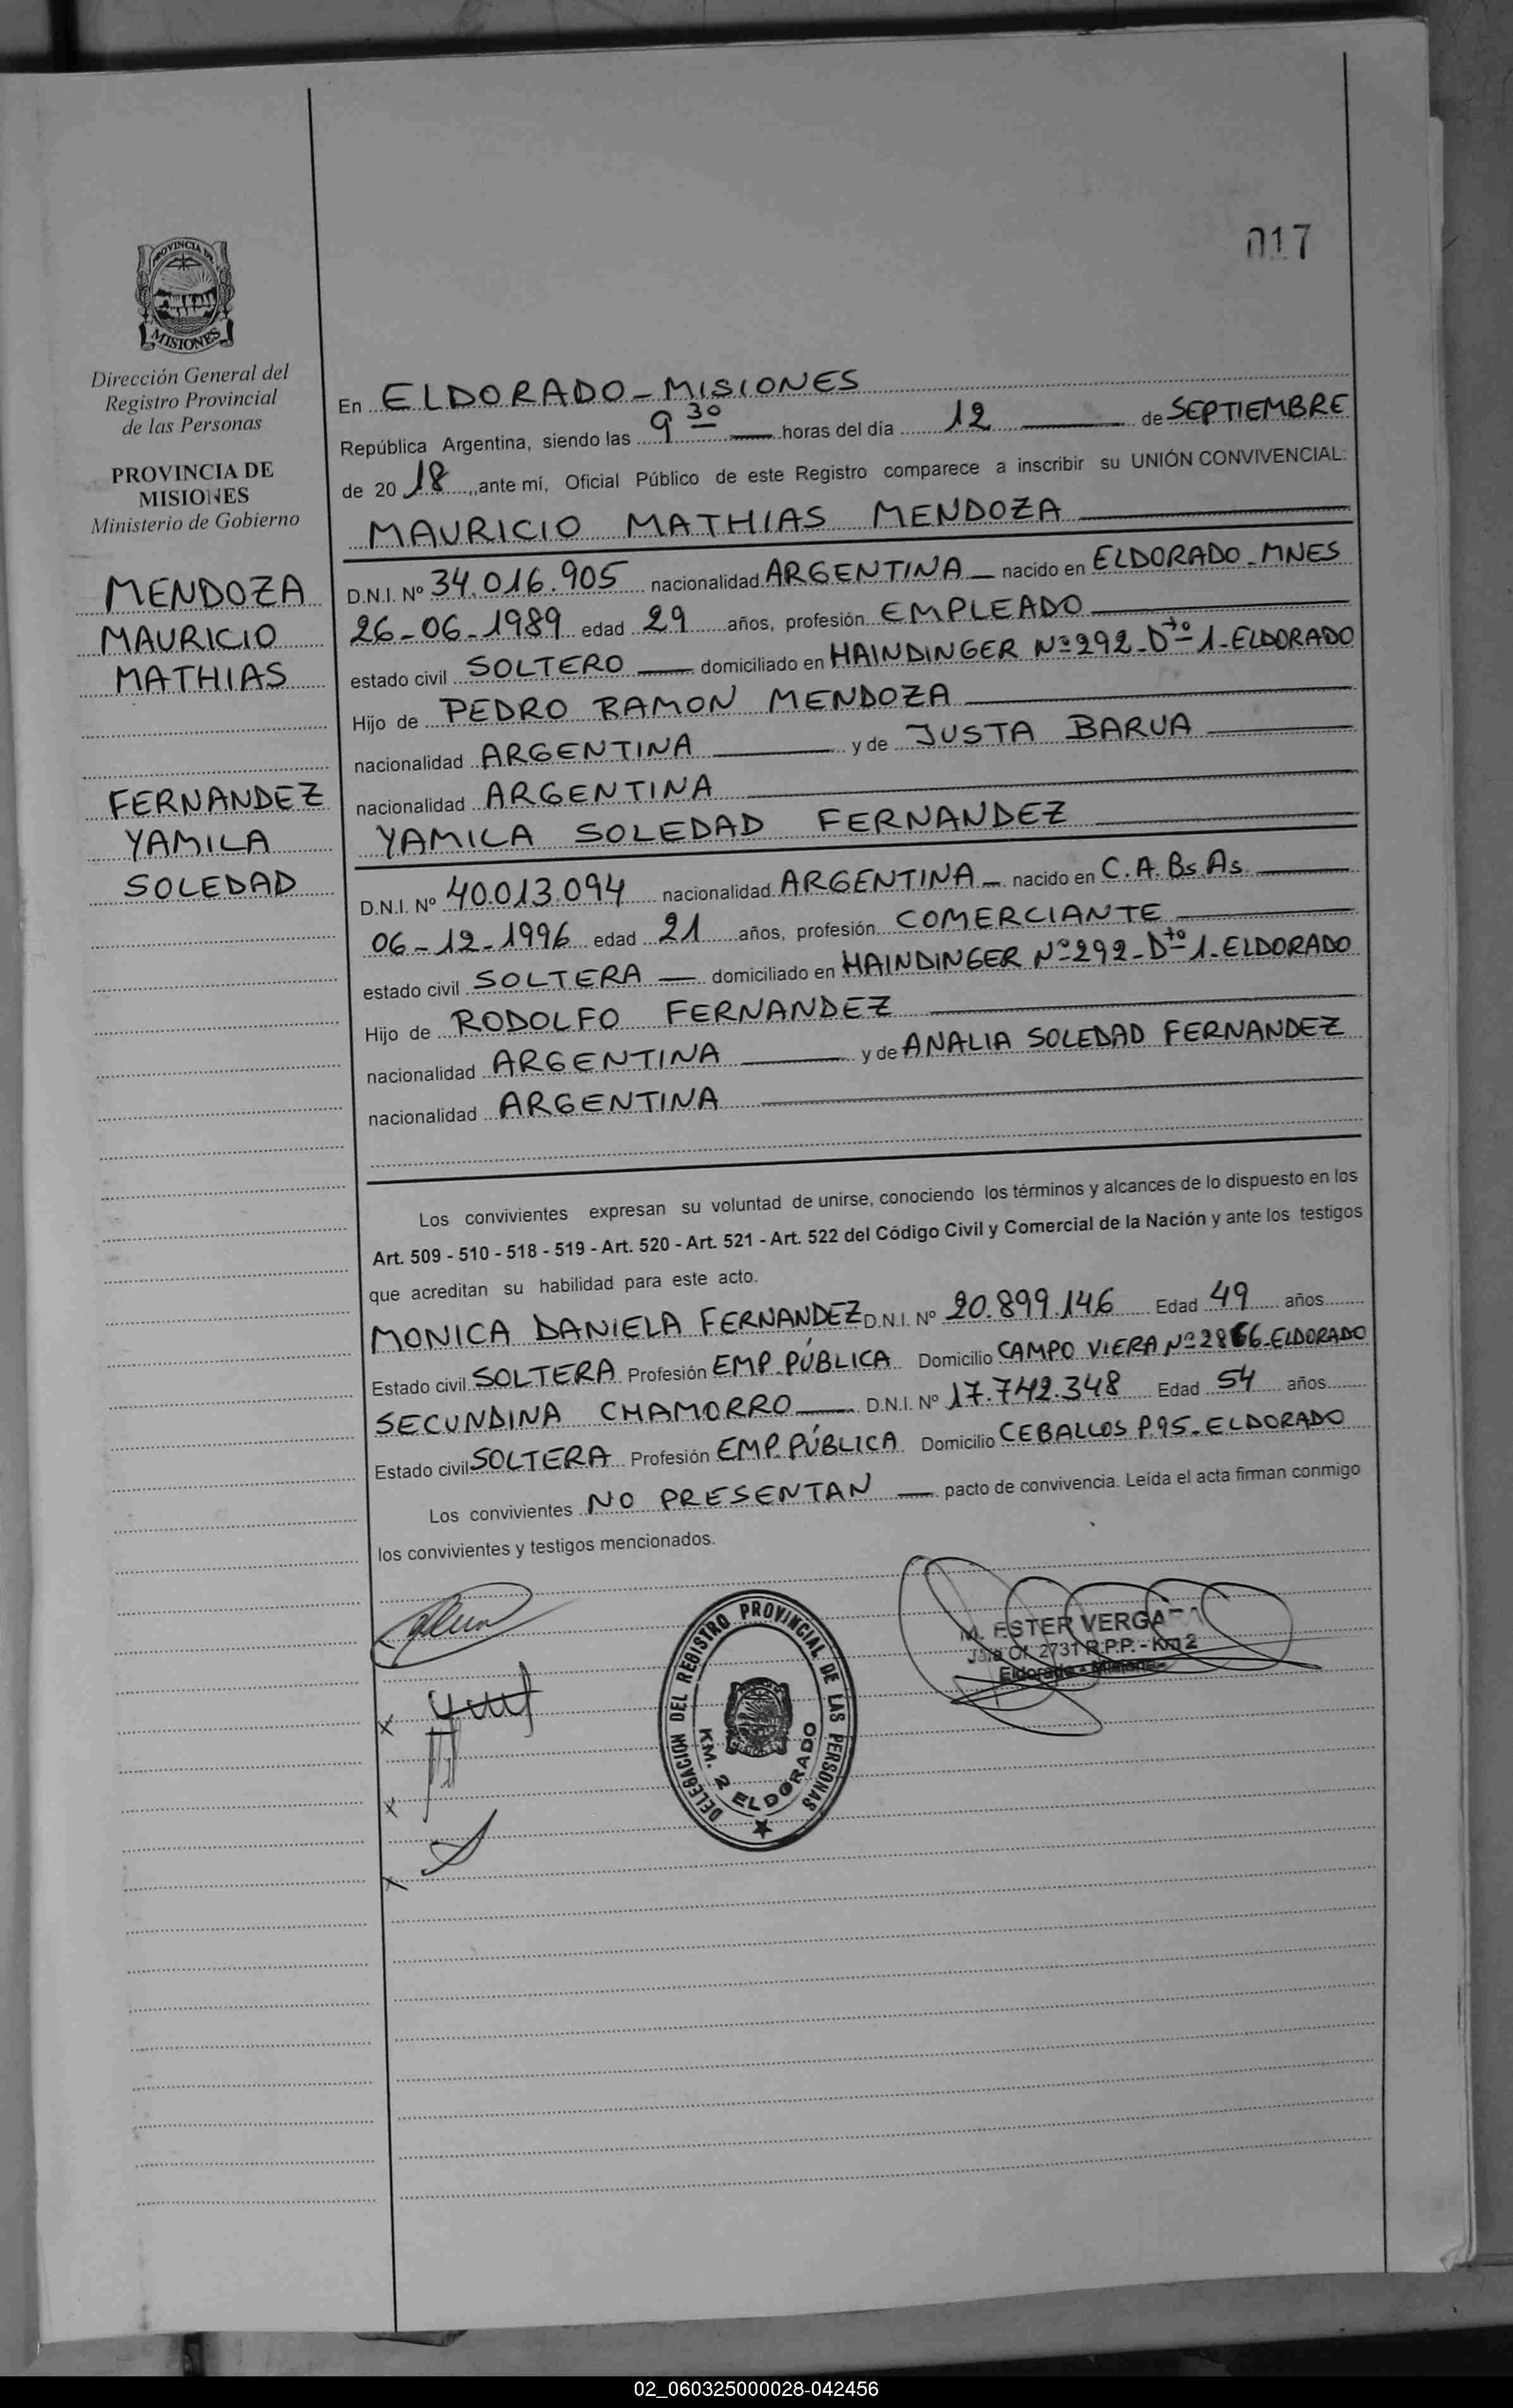 017
PROVINCIA DE
MISIONES
Dirección General del
Registro Provincial
de las Personas
PROVINCIA DE
MISIONES
Ministerio de Gobierno
MENDOZA
MAURICIO
MATHIAS
FERNANDEZ
YAMILA
SOLEDAD
En ELDORADO - MISIONES
República Argentina, siendo las 9 30 horas del día 12 de SEPTIEMBRE
de 20 18, ante mí, Oficial Público de este Registro comparece a inscribir su UNIÓN CONVIVENCIAL:
MAURICIO MATHIAS MENDOZA
D.N.I. Nº 34.016.905 nacionalidad ARGENTINA nacido en ELDORADO - MNES
26-06-1989 edad 29 años, profesión EMPLEADO
estado civil SOLTERO domiciliado en HAINDINGER Nº 292 - Dto 1 - ELDORADO
Hijo de PEDRO RAMON MENDOZA
nacionalidad ARGENTINA y de JUSTA BARUA
nacionalidad ARGENTINA
YAMILA SOLEDAD FERNANDEZ
D.N.I. Nº 40.013.094 nacionalidad ARGENTINA nacido en C.A. Bs. As.
06-12-1996 edad 21 años, profesión COMERCIANTE
estado civil SOLTERA domiciliado en HAINDINGER Nº 292 - Dto 1 - ELDORADO
Hijo de RODOLFO FERNANDEZ
nacionalidad ARGENTINA y de ANALIA SOLEDAD FERNANDEZ
nacionalidad ARGENTINA
Los convivientes expresan su voluntad de unirse, conociendo los términos y alcances de lo dispuesto en los
Art. 509 - 510 - 518 - 519 - Art. 520 - Art. 521 - Art. 522 del Código Civil y Comercial de la Nación y ante los testigos
que acreditan su habilidad para este acto.
MONICA DANIELA FERNANDEZ D.N.I. Nº 20.899.146 Edad 49 años
Estado civil SOLTERA Profesión EMP. PÚBLICA Domicilio CAMPO VIERA Nº 2866 - ELDORADO
SECUNDINA CHAMORRO D.N.I. Nº 17.742.348 Edad 54 años
Estado civil SOLTERA Profesión EMP. PÚBLICA Domicilio CEBALLOS P.95 - ELDORADO
Los convivientes NO PRESENTAN pacto de convivencia. Leída el acta firman conmigo
los convivientes y testigos mencionados.
DELEGACION DEL REGISTRO PROVINCIAL DE LAS PERSONAS
KM. 2 ELDORADO
M. ESTER VERGARA
Jefa Of. 2731 R.P.P. - Km 2
Eldorado - Misiones
02_060325000028-042456